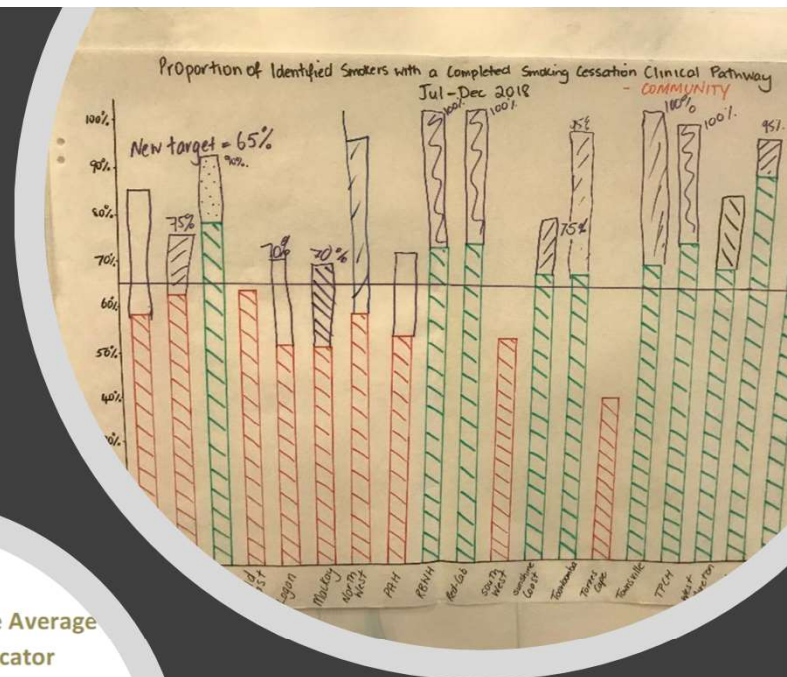 Proportion of Identified Smokers with a Completed Smoking Cessation Clinical Pathway
Jul-Dec 2018
- COMMUNITY
New target = 65%
100%
90%
80%
70%
60%
50%
40%
75%
90%.
70%
70%
100%
100%
75%
100%
100%.
95%
Logan
Mackay
North West
PAH
RBNH
Red-Cab
South West
Sunshine Coast
Toowoomba
Torres Cape
Townsville
TPCH
West
e Average
cator